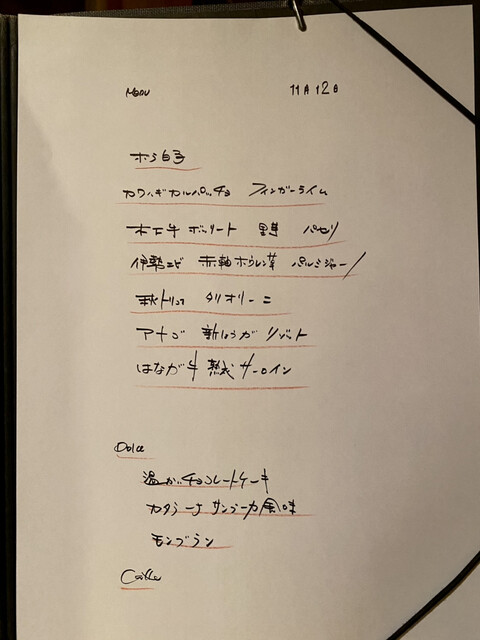 Menu 11月12日
ホラ白子
カワハギカルパッチョ フィンガーライム
牛 ボッリート パセリ
伊勢エビ 赤軸ホウレン草 パルミジャーノ
秋トリュフ タリオリーニ
アナゴ 新しょうが リゾット
はなが牛 熟成 サーロイン
Dolce
温かいチョコレートケーキ
カタラーナ サンブーカ風味
モンブラン
Caffe